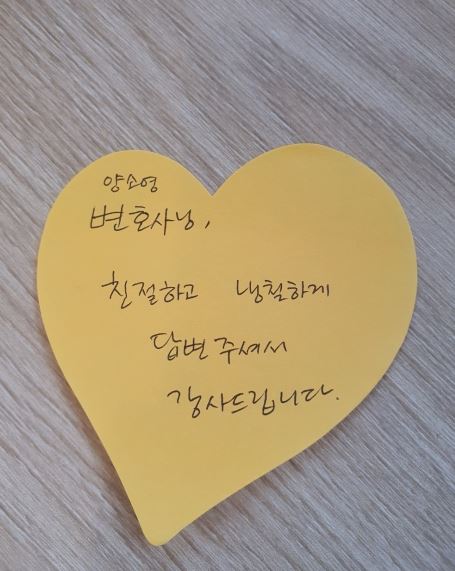 양소영
변호사님,
친절하고 냉철하게
답변 주셔서
감사드립니다.